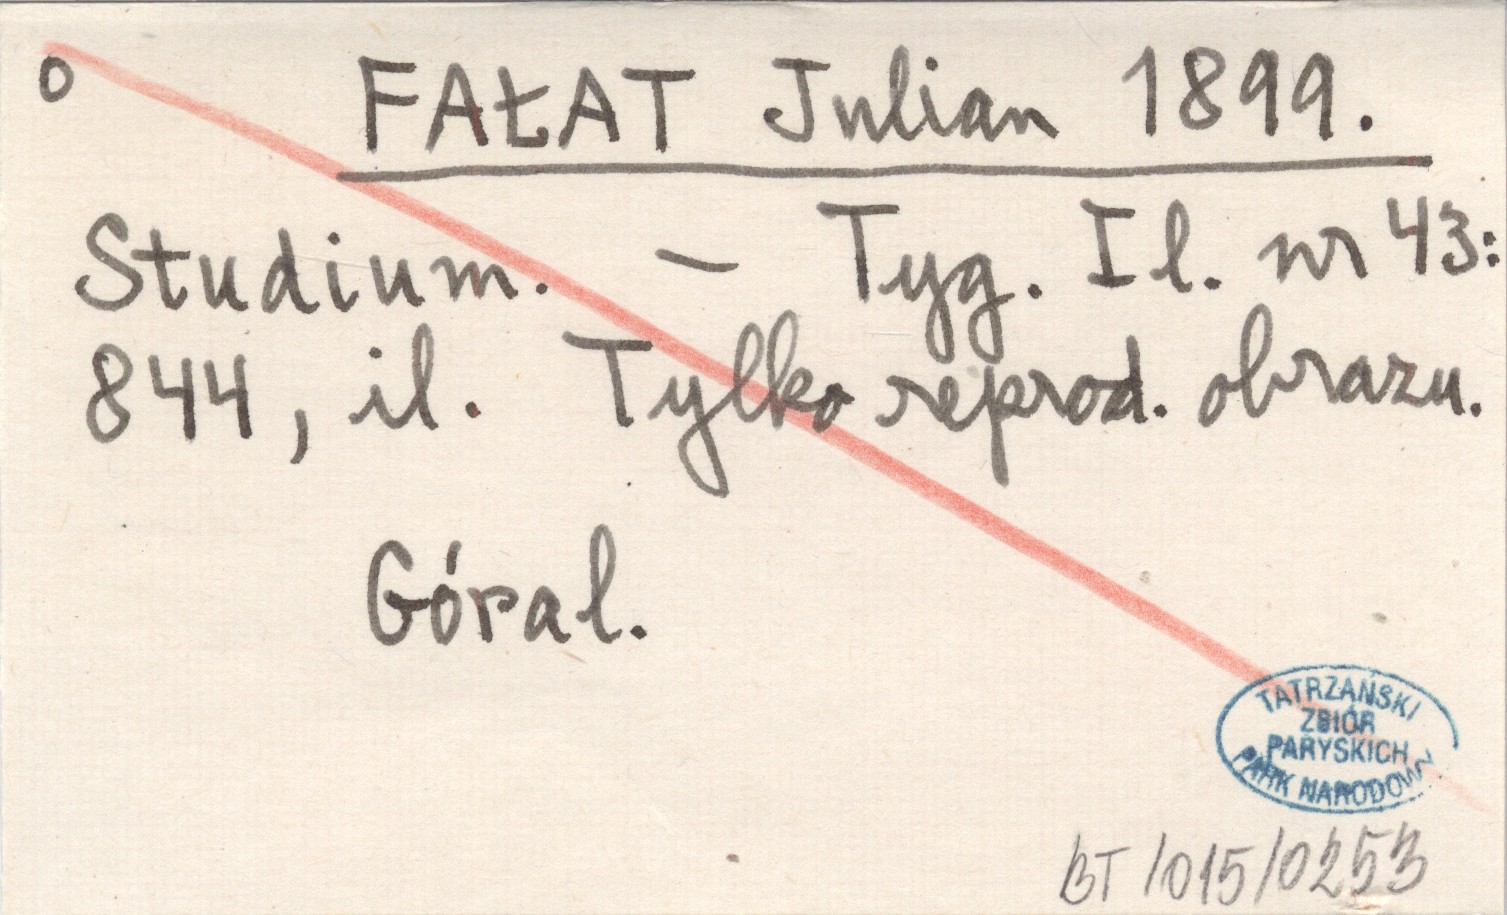 o FAŁAT Julian 1899.
Studium. – Tyg. Il. nr 43:
844, il. Tylko reprod. obrazu.
Góral.
TATRZAŃSKI
ZBIÓR
PARYSKICH
PARK NARODOWY
BT/015/0253